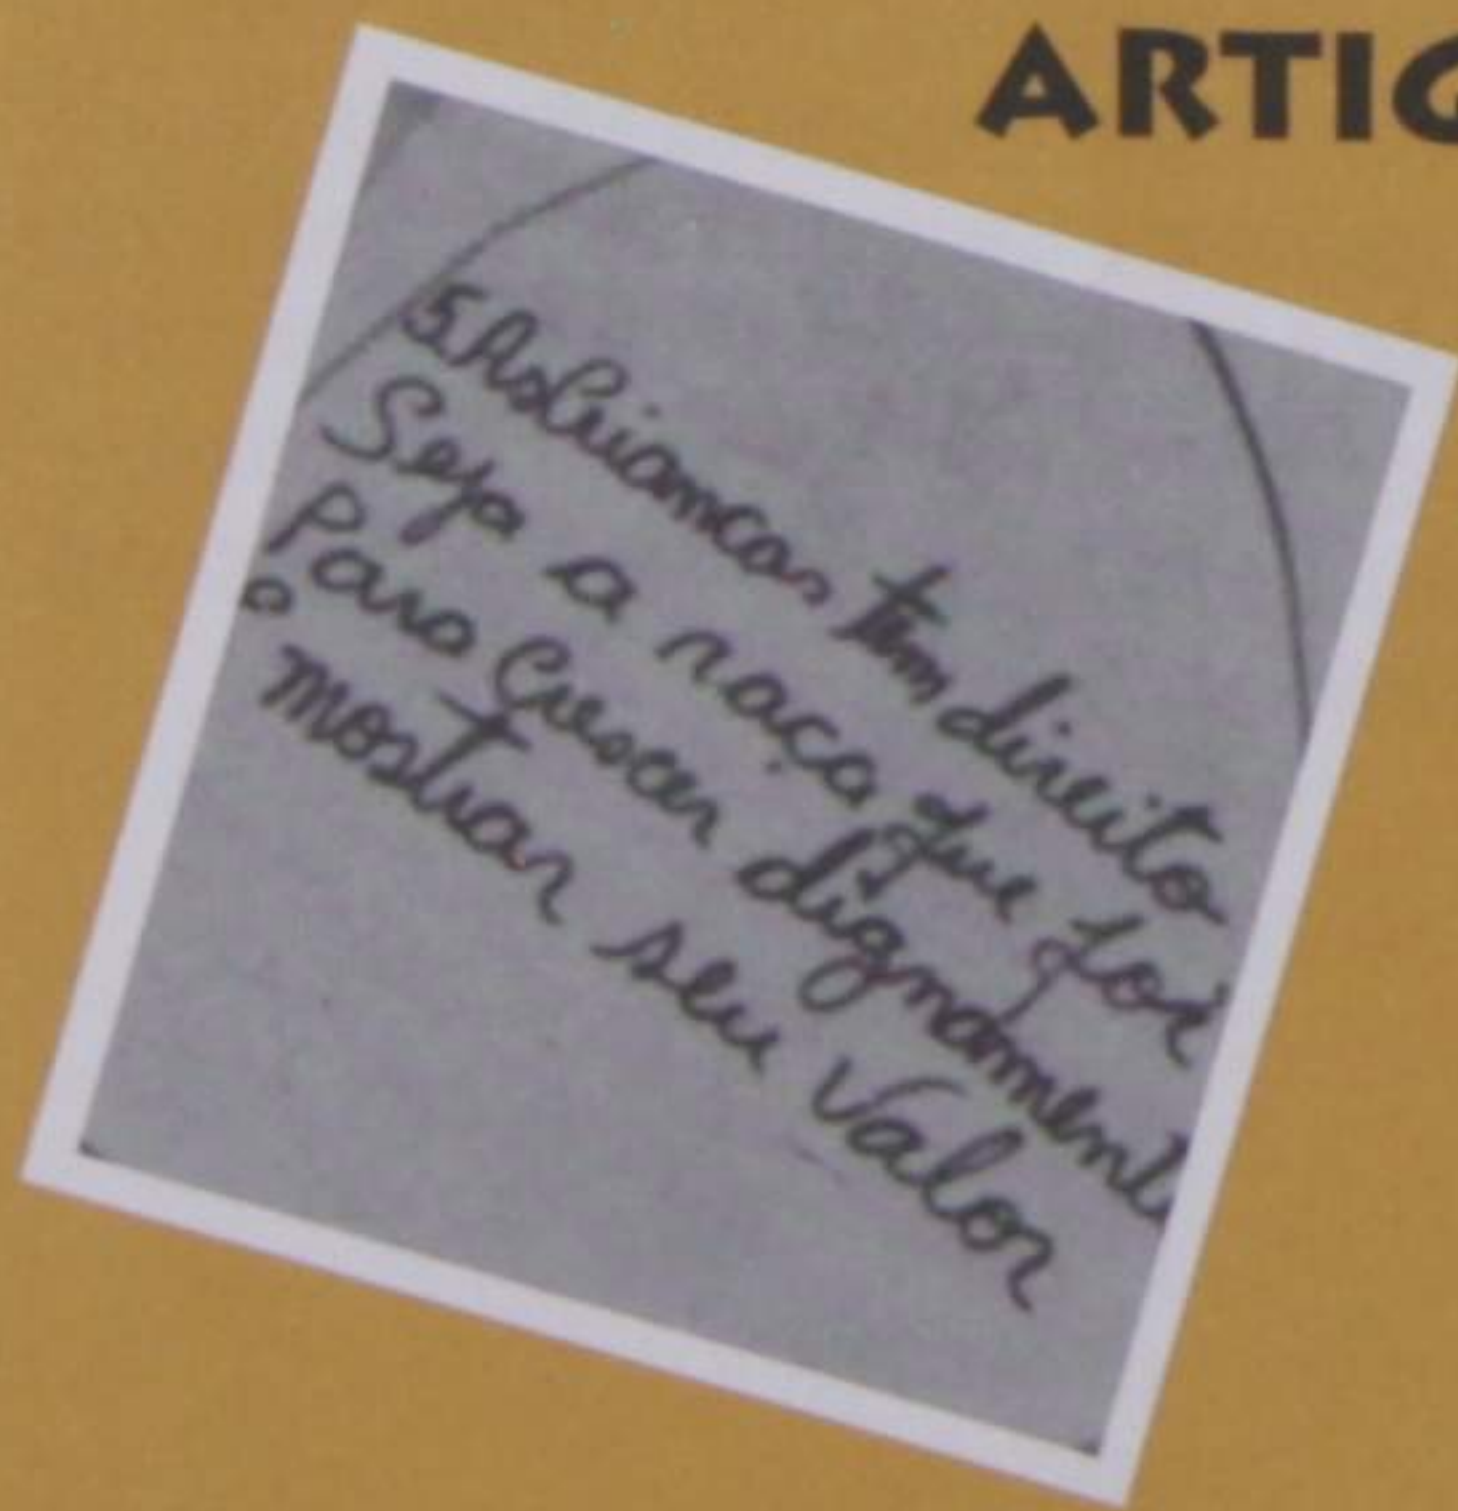 ARTIG
5. As Crianças tem direito
Seja a raça que for
Para Crescer dignamente
e
mostrar seu valor